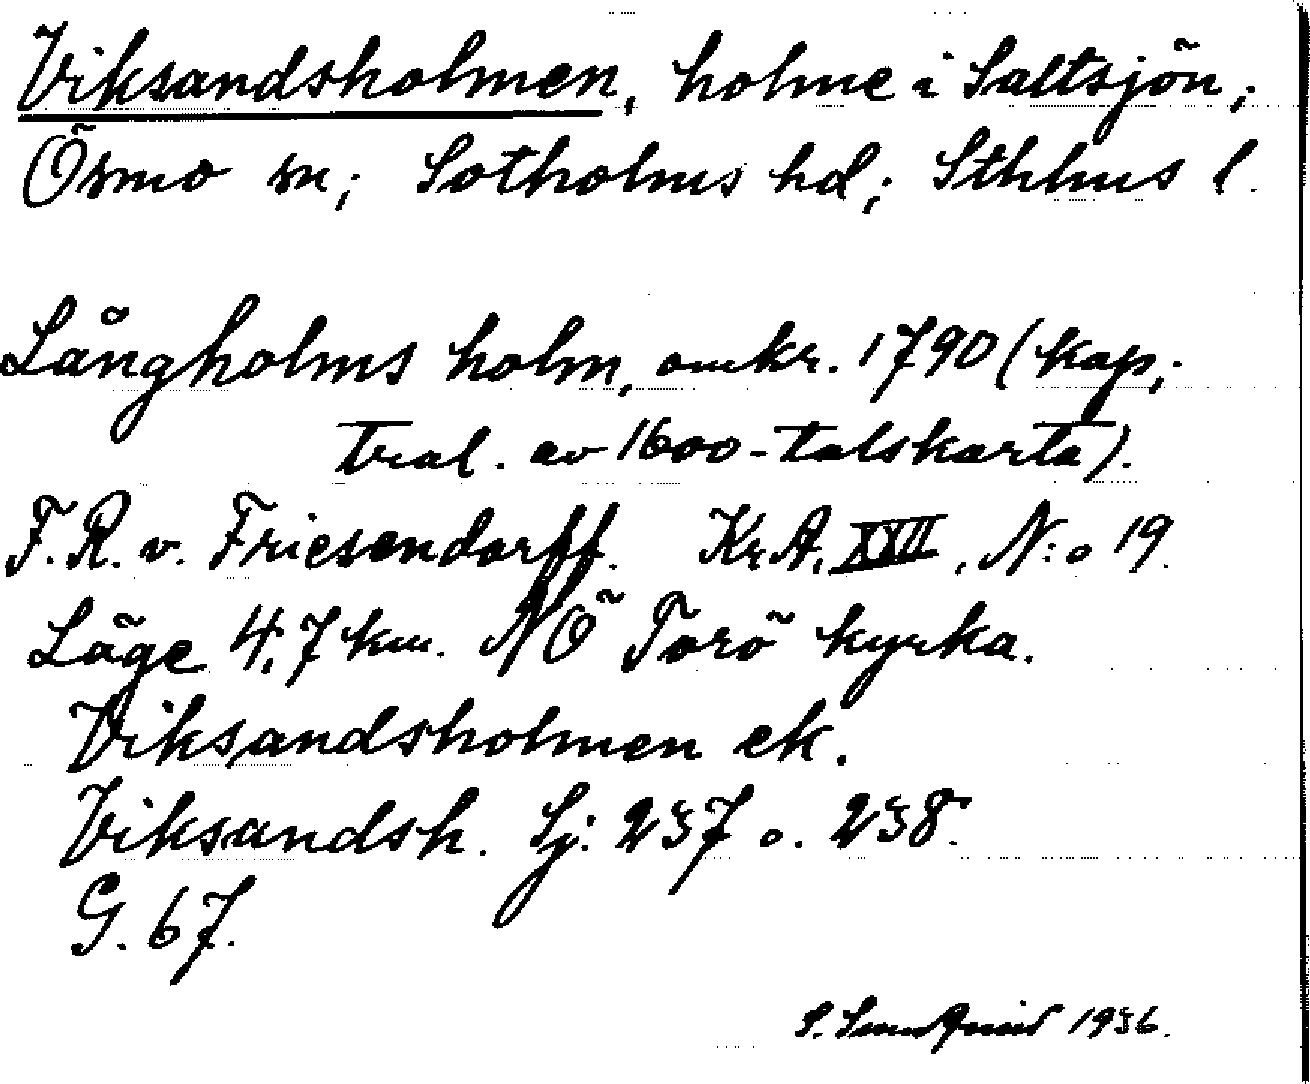 Viksandsholmen, holme i Saltsjön;
Ösmo sn; Sotholms hd; Sthlms l.
Långholms holm, omkr. 1790 (kop;
tral. av 1600-talskarta).
F.R. v. Friesendorff. Kr.A. XXII, N:o 19.
Läge 4,7 km. NÖ Torö kyrka.
Viksandsholmen ek.
Viksandsh. Sj: 237 o. 238.
G. 67.
S. 1936.